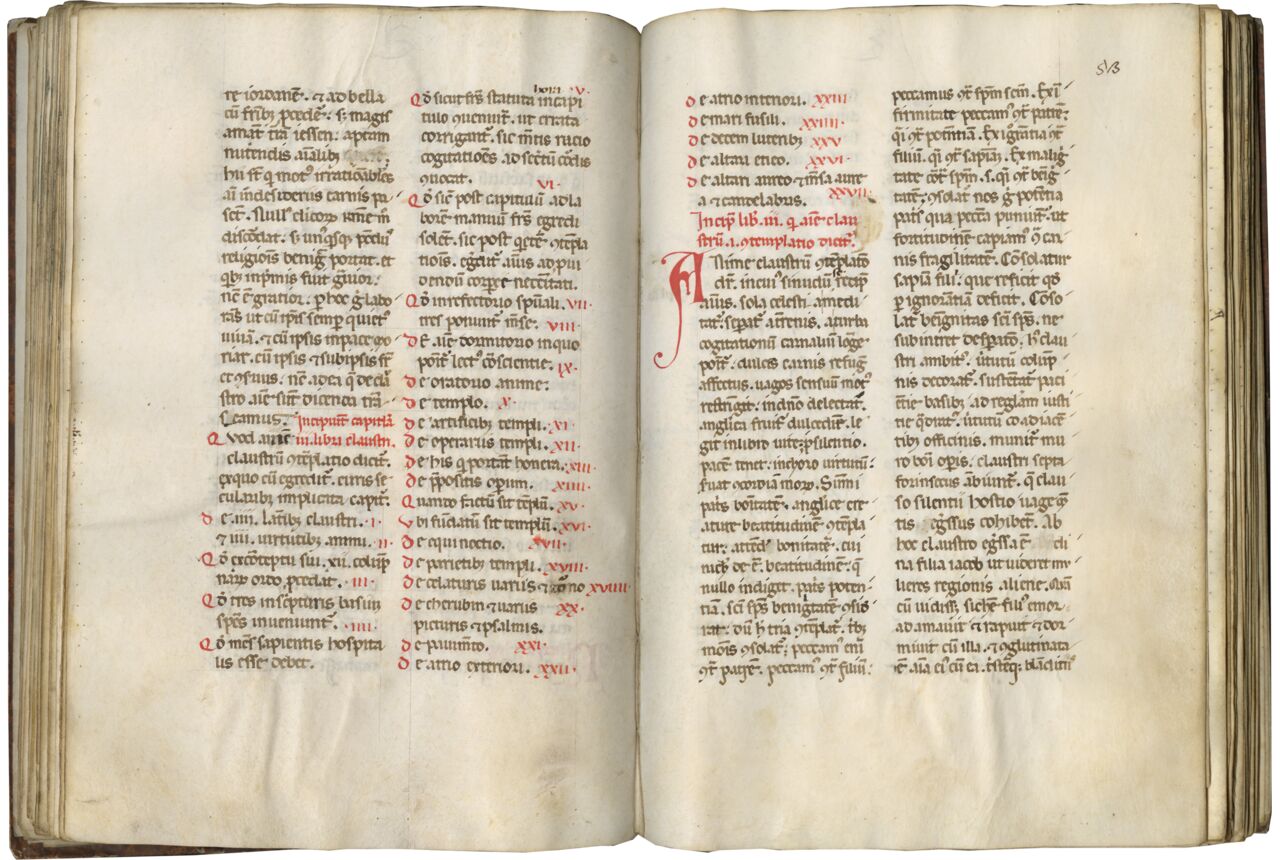 re iordanē. ⁊ ad bella
cū frīb; p̄cedē. s; magis
amāt t̄rā iessen. aptam
nutriendis aīalib;
hīi st̄ q̇ mot' irr̄ationabiles
aī in desideriis carnis pa-
scē. Null' clicoꝝ
discōdat. s; un'q̇sq; p̄ci'
religionis beniḡ portat. et
qb; inp̄mis fuit ḡuior.
nē ē gratior. p hoc ḡ labo-
ram' ut cū ip̄is semp̄ quiet'
uiuā. ⁊ cū ipsis in pace mo-
riat. cū ipsis ⁊ sub ipsis
stro aīe sūt dicenda
Incipiūt capitla
Q uod anīe iii. libri claustri.
claustrū ꝯtēplatio dicit.
ex quo cū egredit. curis se-
cularib; implicita capit.
D e iiii. lat'ib; claustri. i.
⁊ iiii. uirtutib; animi. ii.
Q ō exc̄ōtēptu sui. xii. colūp-
narꝝ ordo p̄cedat. iii.
Q ō tres in sc̄pturis basiū
sp̄es inueniunt. iiii.
Q ō mēs sapientis hospita-
lis esse debet.
hora. v.
Q ō sicut fr̄s statuta in capi-
tulo ꝯueniūt. ut errata
corrigant. sic mētis ratio
cogitatiōes ad sec̄tū cordis
ꝯuocat. vi.
Q ō sic post capitulū ad la-
borem manuū fr̄s egredi
solent. sic post quetē ꝯtēpla-
tiōis. egredit aīus ad pui-
dendū corpore necc̄itati.
Q ō in refectorio sp̄uali. vii.
tres ponunt mēse. viii.
D e aīe dormitorio in quo
ponit lect' cōscientie. ix.
D e oratorio anime.
D e templo. x.
D e artificib; templi. xi.
D e operariis templi. xii.
D e his q̇ portāt honera. xiii.
D e p̄positis opum. xiiii.
Q uanto factū sit tēplū. xv.
V bi fūdatū sit templū. xvi.
D e equinoctio. xvii.
D e parietib; templi. xviii.
D e celaturis uariis ⁊ xviiii
D e cherubin ⁊ uariis xx.
picturis ⁊ psalmis.
D e pauimēto. xxi.
D e atrio exteriori. xxii.
D e atrio interiori. xxiii.
D e mari fusili. xxiiii.
D e decem luterib; xxv
D e altari eneo. xxvi.
D e altari aureo ⁊ mēsa aure-
a ⁊ candelabris. xxvii.
Incip̄ lib. iii. q̇ aīe clau-
strū .i. ꝯtemplatio dicit.
A Nime claustrū ꝯtēplatō
dr̄. in cui' sinū dū se recip̄
aīus. sola celestia medi-
tat. sep̄at a trenis. a turba
cogitationū carnaliū longe
ponit. dulces carnis refuḡ
affectus. uagos sensuū mot'
restringit. in dn̄o delectat.
anglica fruit dulcedīe. le-
git in libro uite p silentio.
pacē tenet. in choro uirtutū
s̄uat ꝯcordia moꝝ. Sum̄i
patis boītatē. anglice cre-
ature beatitudinē ꝯtēpla-
tur. attēd̄ bonitatē. cui
nich̄ de ē. beatitudinē. q̇
nullo indiget. pat̄s poten-
tiā. sc̄i sp̄s beniḡtatē ꝯsid-
erat. dū h' tria ꝯtēplat. t̄b;
mōis ꝯsolat. peccam' eni
ꝯt̄ patrē. peccam' ꝯt̄ filiū.
513
peccamus ꝯt̄ sp̄m sc̄m. Ex ī-
firmitate peccam' ꝯt̄ patrē.
q̇ ꝯt̄ potentiā. Ex iḡratia ꝯt̄
filiū. q̇ ꝯt̄ sapiam. Ex maliḡ-
tate cōt̄ sp̄m. s. q̇ ꝯt̄ beniḡ-
tatē. ꝯsolat' nos ḡ potētia
pat̄s qua pecc̄ta puniūt. ut
fortitudinē capiam' ꝯ̄ car-
nis fragilitatē. Cōsolatur
sapīa filii. que reficit qd̄
p ignorantiā deficit. Cōso-
lat benignitas sc̄i sp̄s. ne
subintret despatō. h' clau-
stri ambit'. uirtutū colūp-
nis decorat. sustētat paci-
ētie basib;. ad reglam iusti-
tie qd̄rat. uirtutū coadiacē-
tib; officinis. munit mu-
ro boni opis. claustri septa
forinsecus ābiunt. q̇ clau-
so silentii hostio uage mē-
tis egressus cohibet. Ab
hoc claustro eg̅ssa ē di-
na filia iacob ut uideret mu-
lieres regionis aliene. Quā
cū uidiss; sichē fili' emor.
adamauit ⁊ rapuit ⁊ dor-
miuit cū illa. ⁊ ꝯglutinata
ē aīa ei' cū ea. t̄stēq; blāditiis